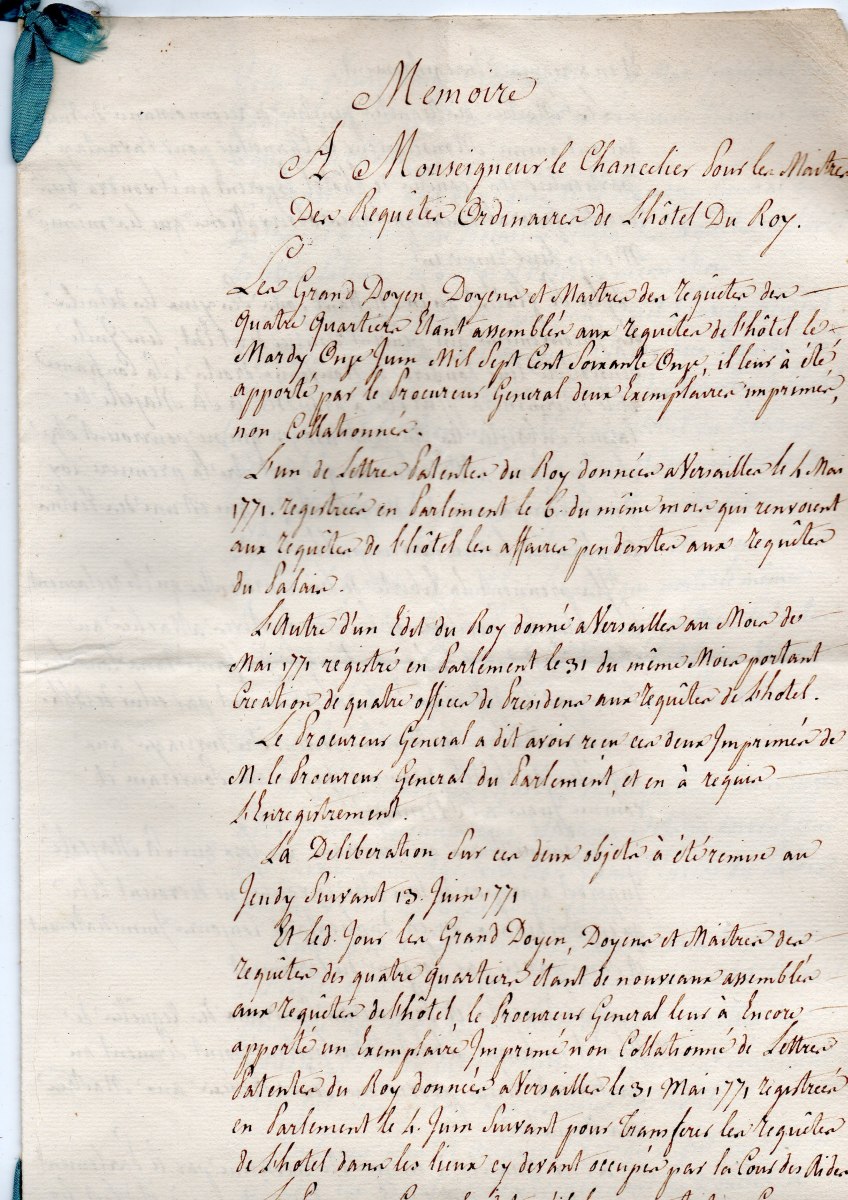 Memoire
A Monseigneur le Chancelier Pour les Maitres
Des Requêtes Ordinaires de L'hôtel Du Roy.
Les Grand Doyen, Doyens et Maitres des requêtes des
quatre quartiers Etant assemblés aux requêtes de l'hôtel le
Mardy Onze Juin Mil Sept Cent Soixante Onze, il leur à été
apporté par le Procureur General deux Exemplaires imprimés,
non Collationnés.
L'un de Lettres Patentes du Roy données a Versailles le 4 Mai
1771. registrées en Parlement le 6. du même mois qui renvoient
aux requêtes de l'hôtel les affaires pendantes aux requêtes
du Palais.
L'Autre d'un Edit du Roy donné a Versailles au Mois de
Mai 1771 registré en Parlement le 31 du même Mois portant
Creation de quatre offices de Presidens aux requêtes de L'hotel.
Le Procureur General a dit avoir recu ces deux Imprimés de
M. le Procureur General du Parlement, et en à requis
L'Enregistrement.
La Deliberation Sur ces deux objets à été remise au
Jeudy Suivant 13. Juin 1771
Et led. Jour les Grand Doyen, Doyens et Maitres des
requêtes des quatre quartiers étant de nouveaux assemblés
aux requêtes de l'hôtel, le Procureur General leur à Encore
apporté un Exemplaire Imprimé non Collationné de Lettres
Patentes du Roy données a Versailles le 31 Mai 1771 registrées
en Parlement le 4. Juin Suivant pour Transferer les requêtes
de L'hotel dans les lieux cy devant occupés par la Cour des Aides